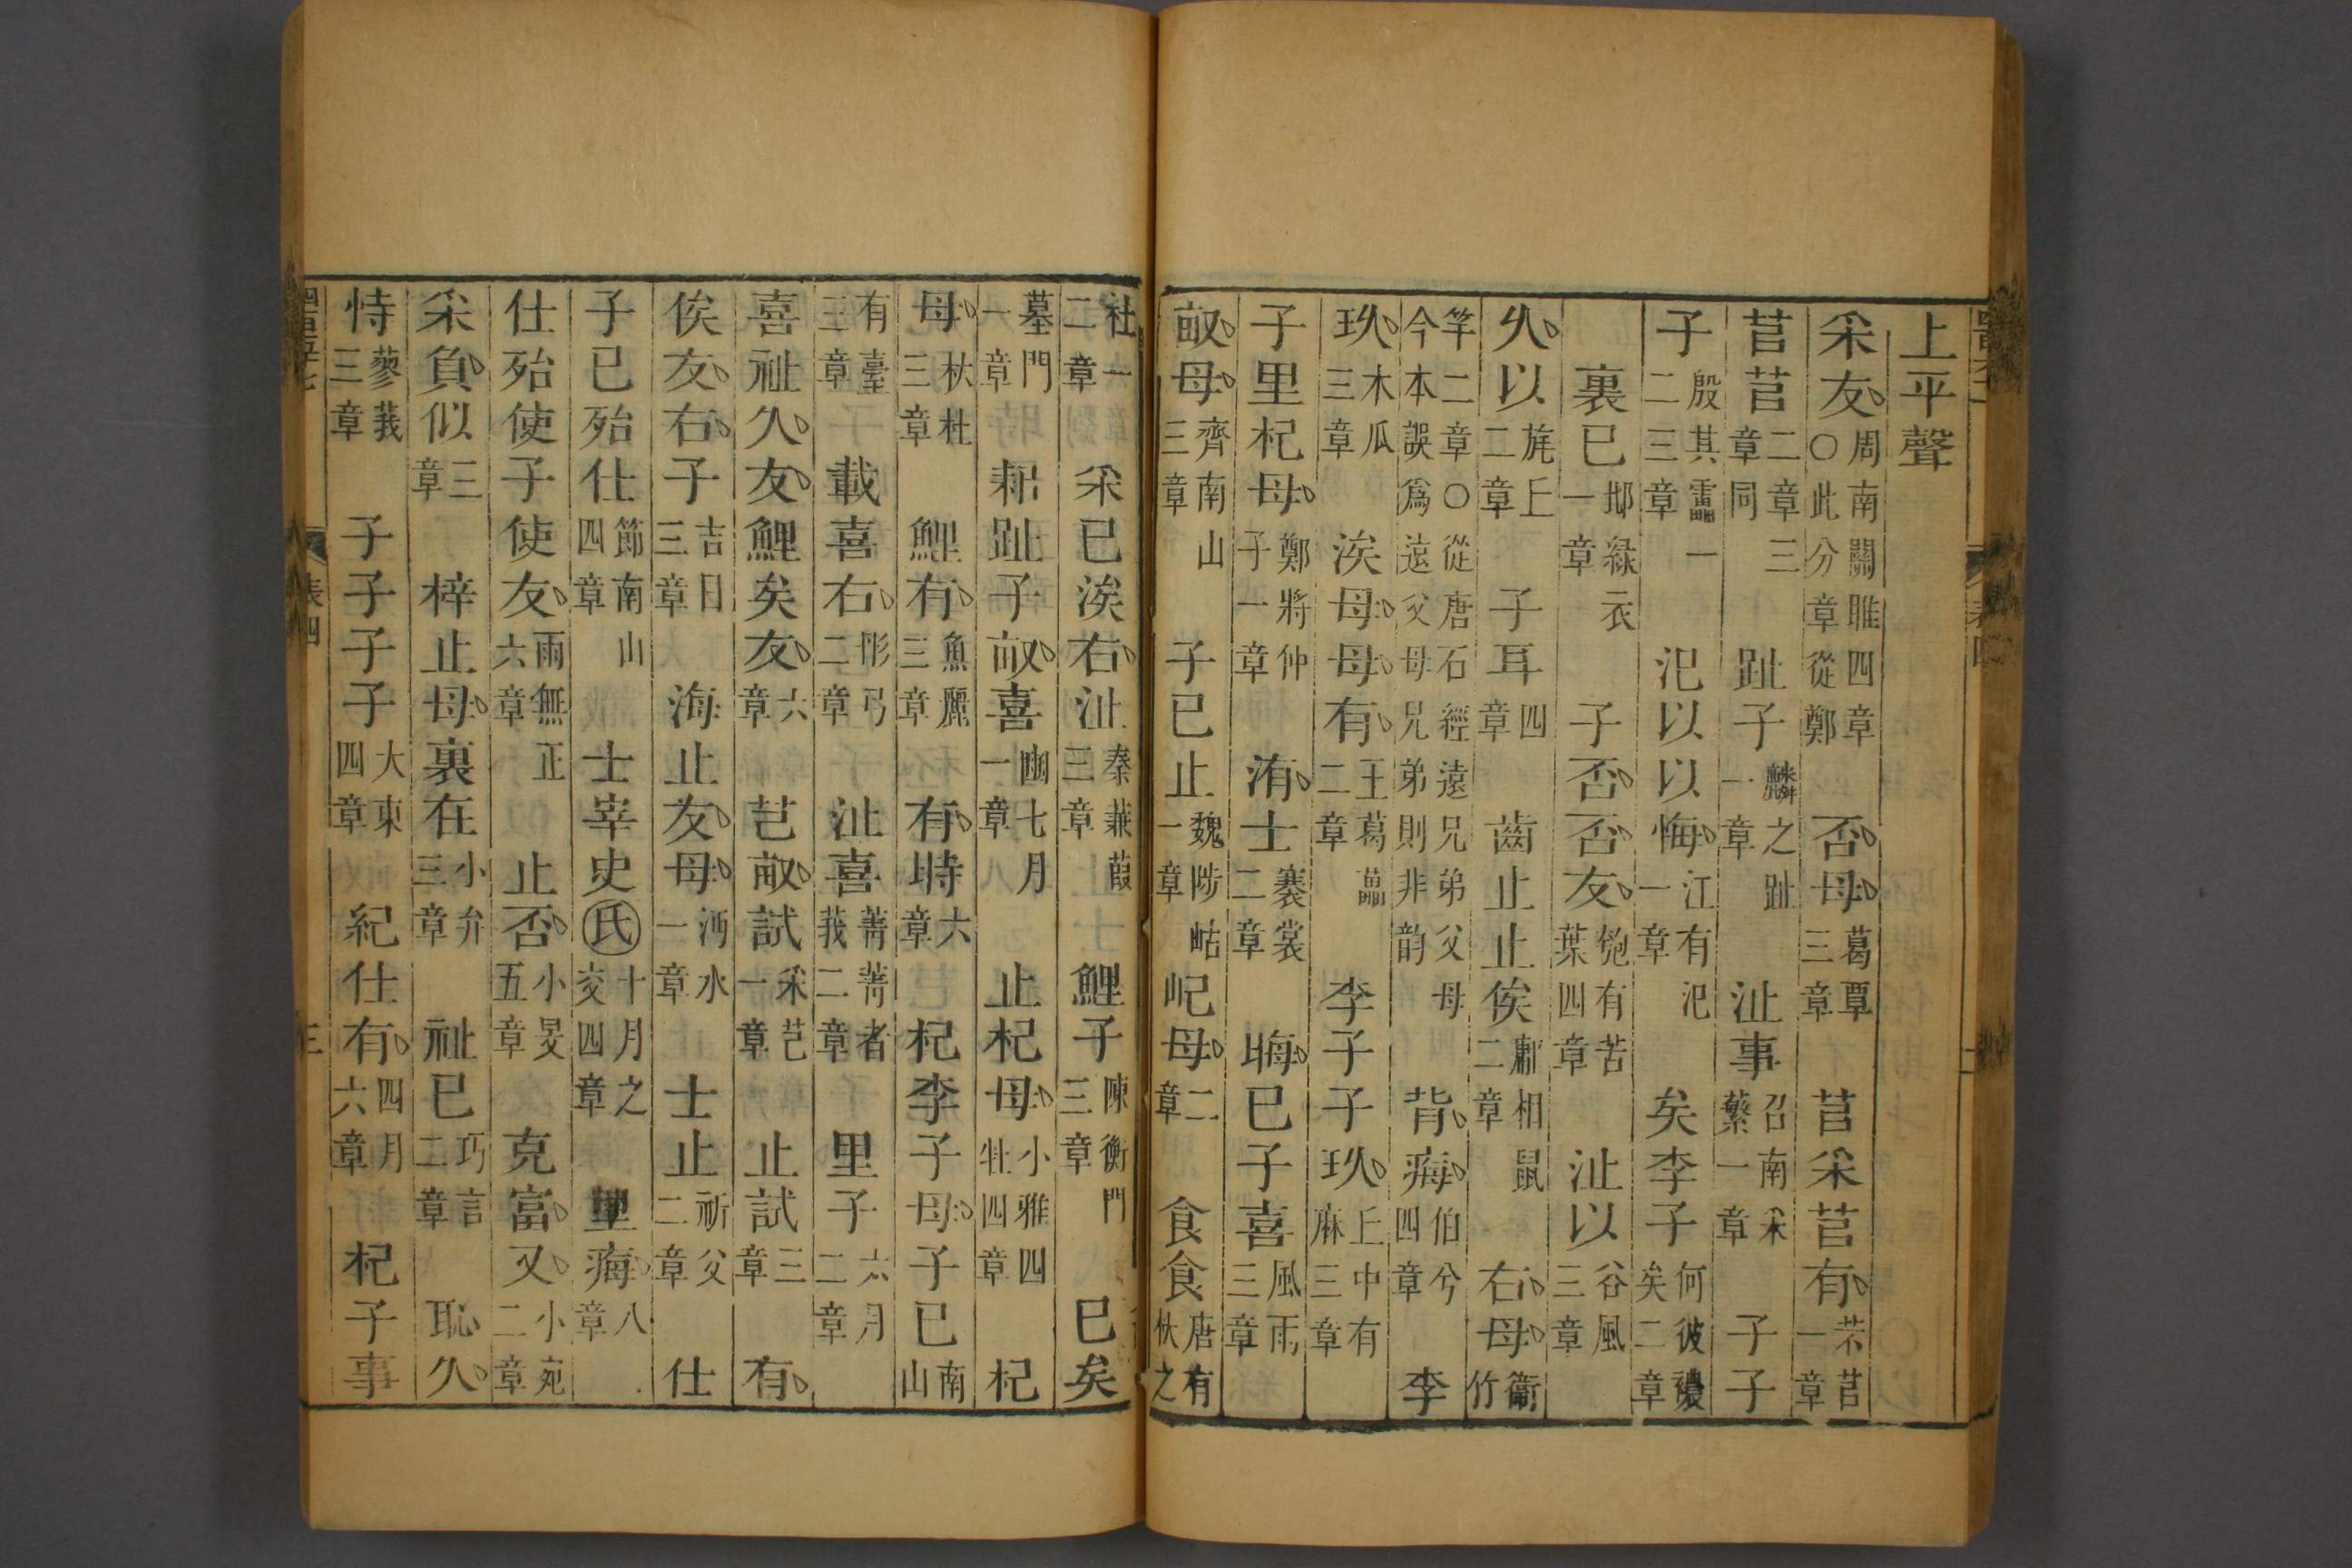 上平聲
采友周南關雎四章○此分章從鄭 否母葛覃三章 苢采苢有芣苢一章
苢苢二章三章同 趾子麟之趾一章 沚事召南采蘩一章 子子
子殷其靁一二三章 汜以以悔江有汜一章 矣李子何彼襛矣二章
裏已邶緑衣一章 子否否友匏有苦葉四章 沚以谷風三章
久以旄丘二章 子耳四章 齒止止俟鄘相鼠二章 右母衞竹
竿二章○從唐石經遠兄弟父母今本誤爲遠父母兄弟則非韵 背痗伯兮四章 李
玖木瓜三章 涘母母有王葛藟二章 李子子玖丘中有麻三章
子里杞母鄭將仲子一章 洧士褰裳二章 晦已子喜風雨三章
畝母齊南山三章 子已止魏陟岵一章 屺母二章 食食唐有杕之
杜一章二章 采已涘右沚秦蒹葭三章 鯉子陳衡門三章 已矣
墓門一章 耜趾子畝喜豳七月一章 止杞母小雅四牡四章 杞
母杕杜三章 鯉有魚麗三章 有時六章 杞李子母子已南山
有臺三章 載喜右彤弓二章 沚喜菁菁者莪二章 里子六月二章
喜祉久友鯉矣友六章 芑畝試采芑一章 止試三章 有
俟友右子吉日三章 海止友母沔水一章 士止祈父二章 仕
子已殆仕節南山四章 士宰史氏十月之交四章 里痗八章
仕殆使子使友雨無正六章 止否小旻五章 克富又小宛二章
采負似三章 梓止母裏在小弁三章 祉已巧言二章 恥久
恃蓼莪三章 子子子子大東四章 紀仕有四月六章 杞子事